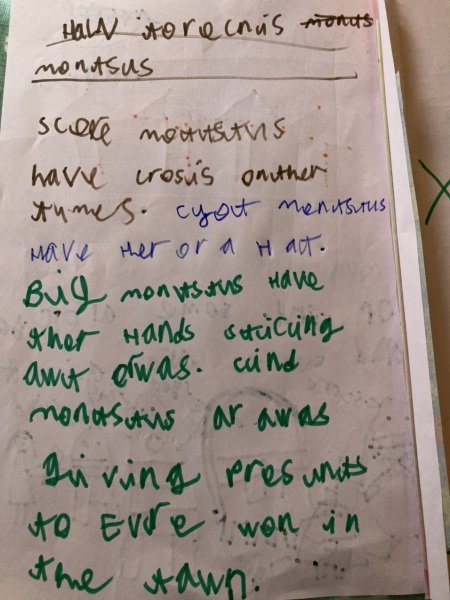 HaLW to recnis monsts
monstsus
scere monststus
have crosis on ther
tumes. cyout monstsutus
Have Her or a Hat.
Big monstsus Have
ther Hands sticing
awt olwas. cind
monstsutus ar awas
giving presunts
to Evre won in
the tawn.